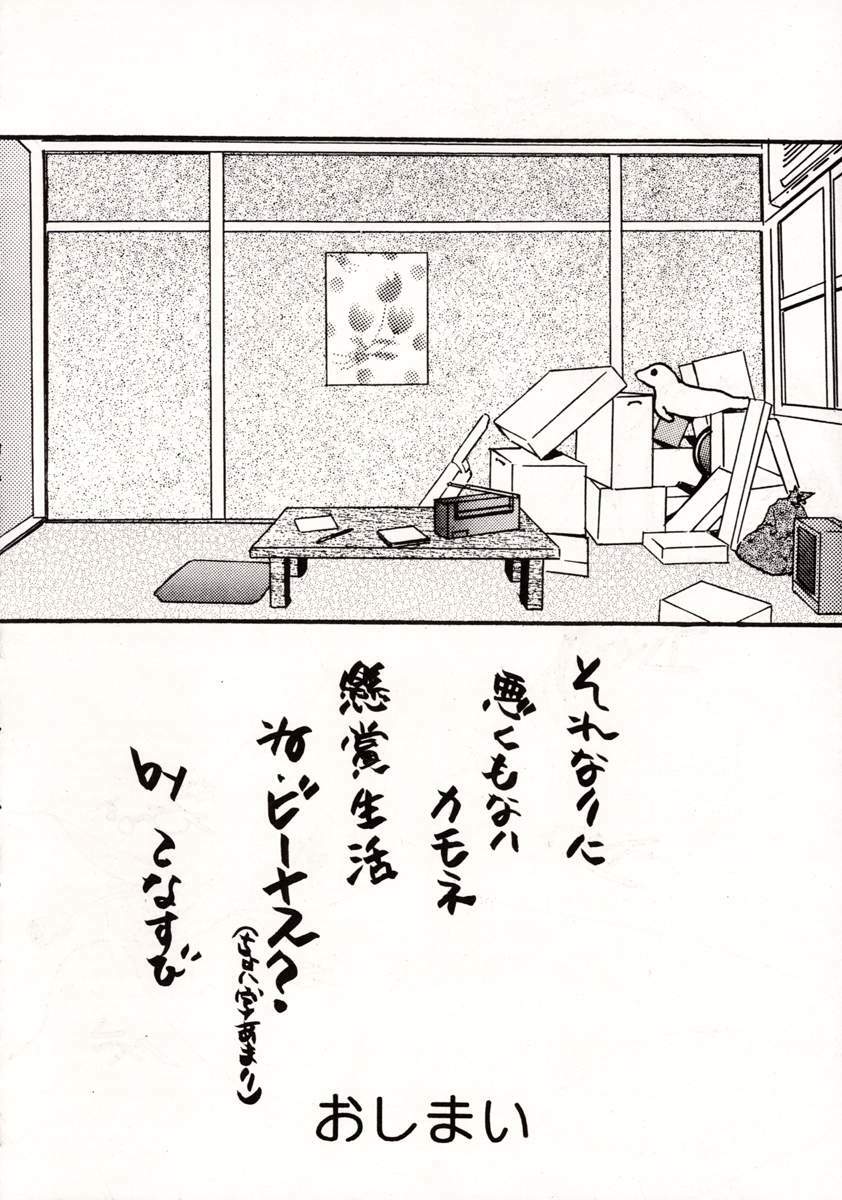 それなりに
悪くもない
カモネ
懸賞生活
ビーナス?
字あまり)
by こなすび
おしまい